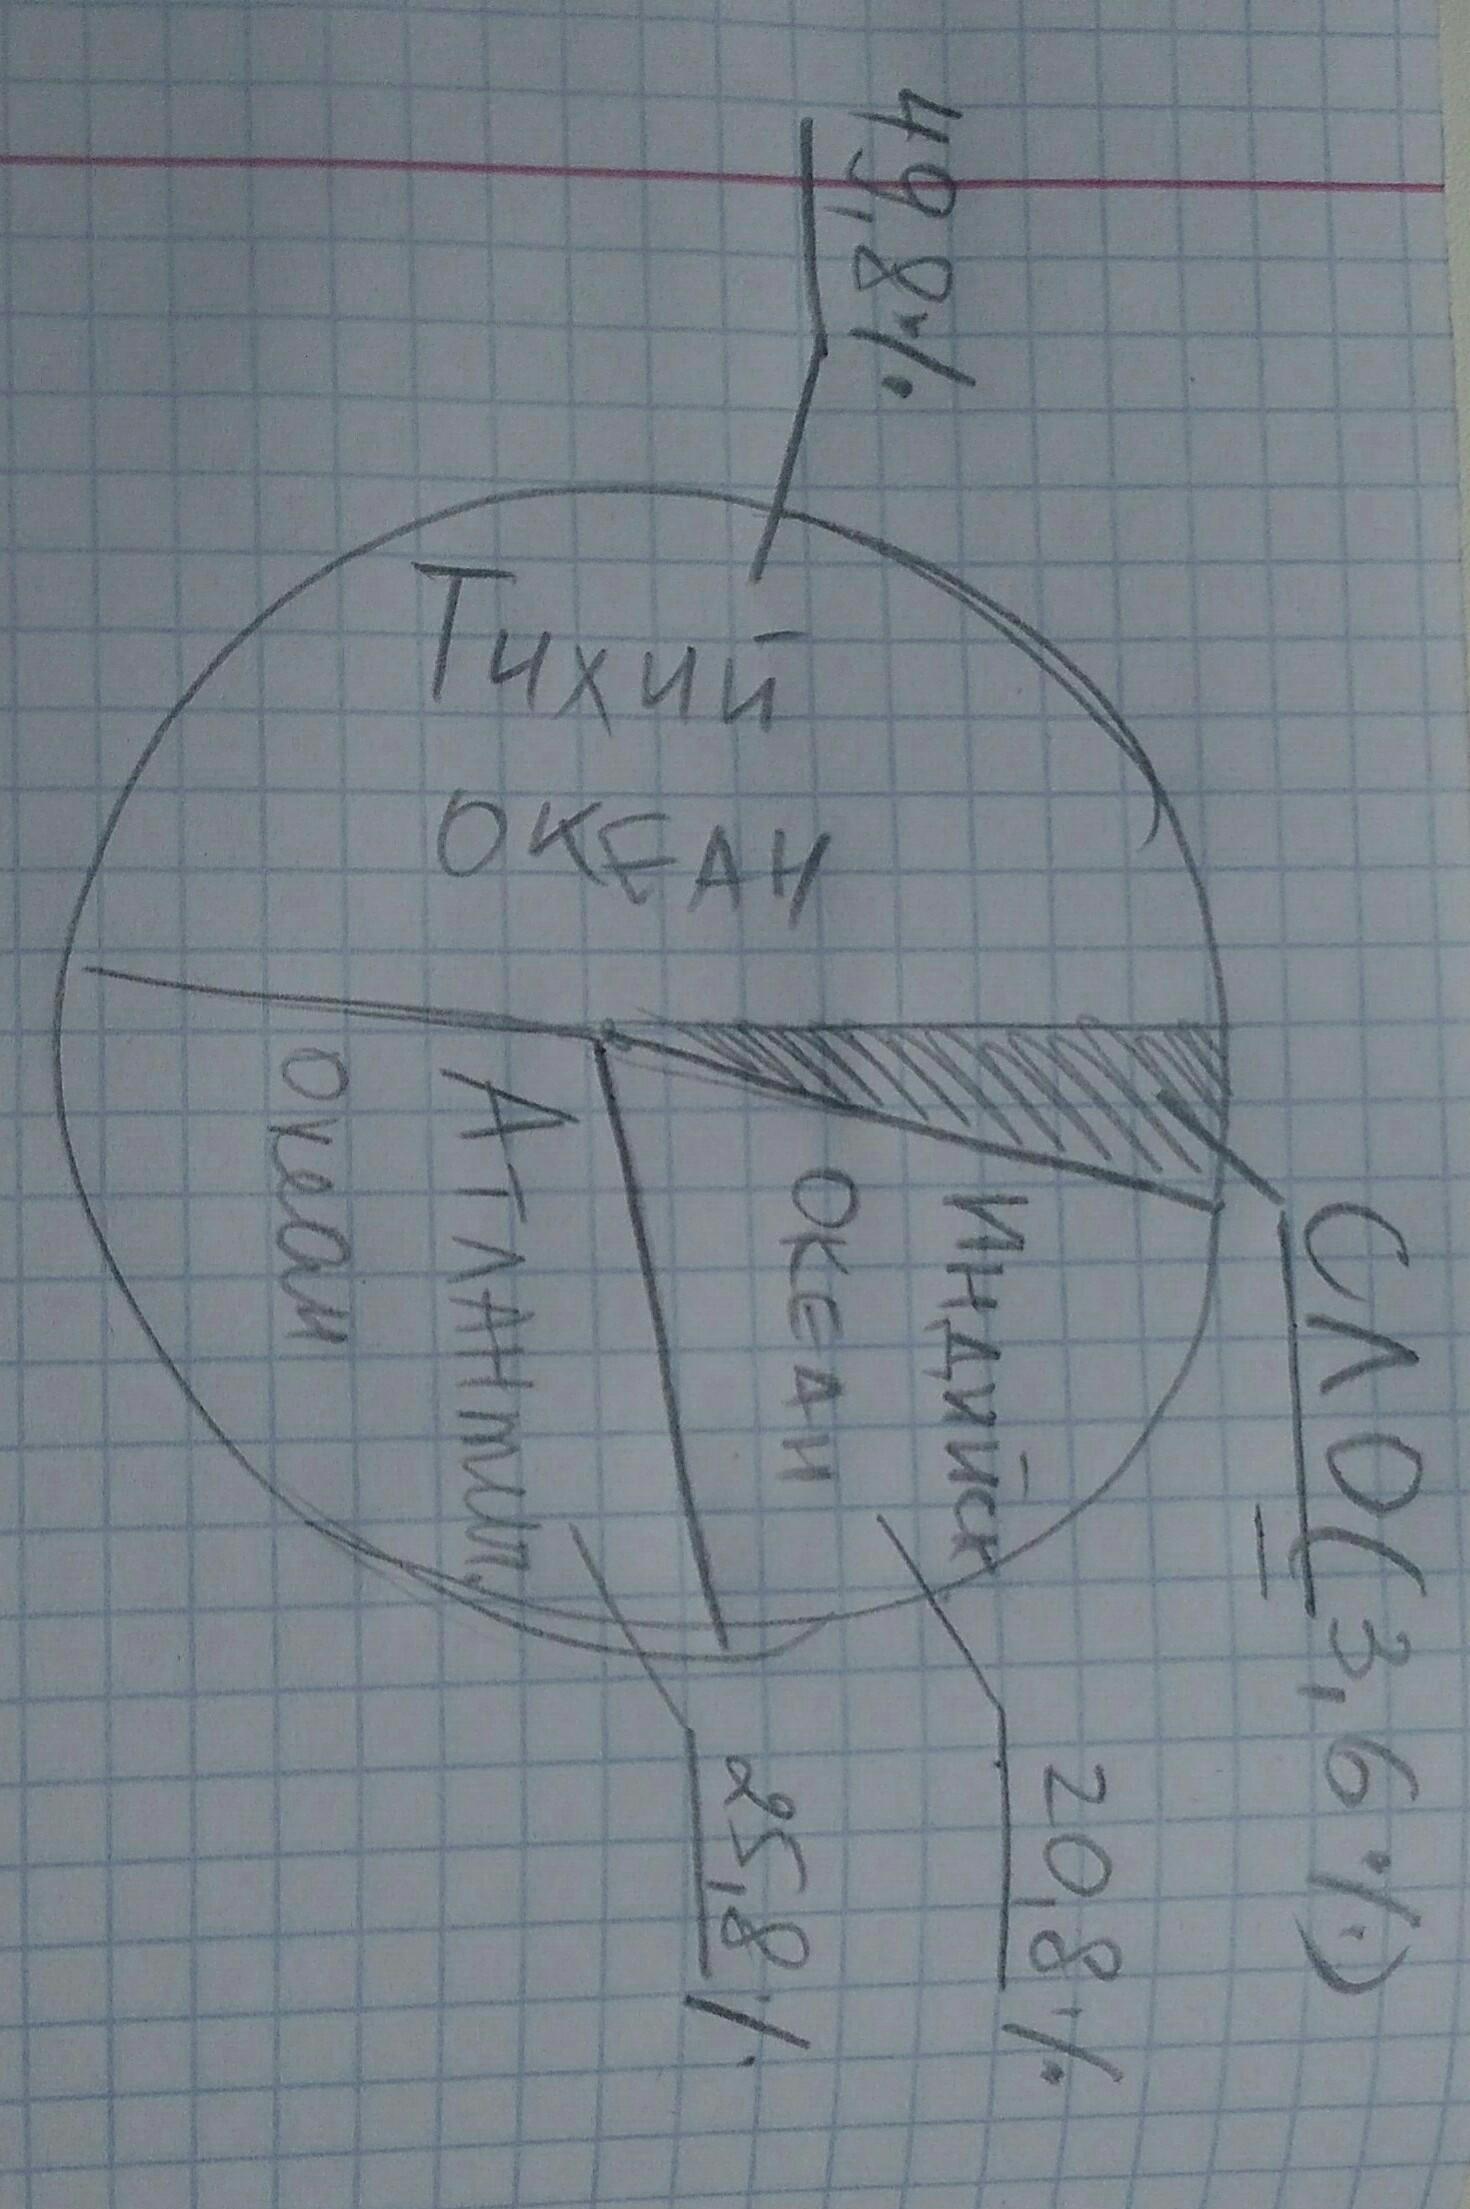 СЛО(3,6%)
49,8%
Тихий
океан
Индийск
океан
20,8%
Атлантич.
океан
25,8%